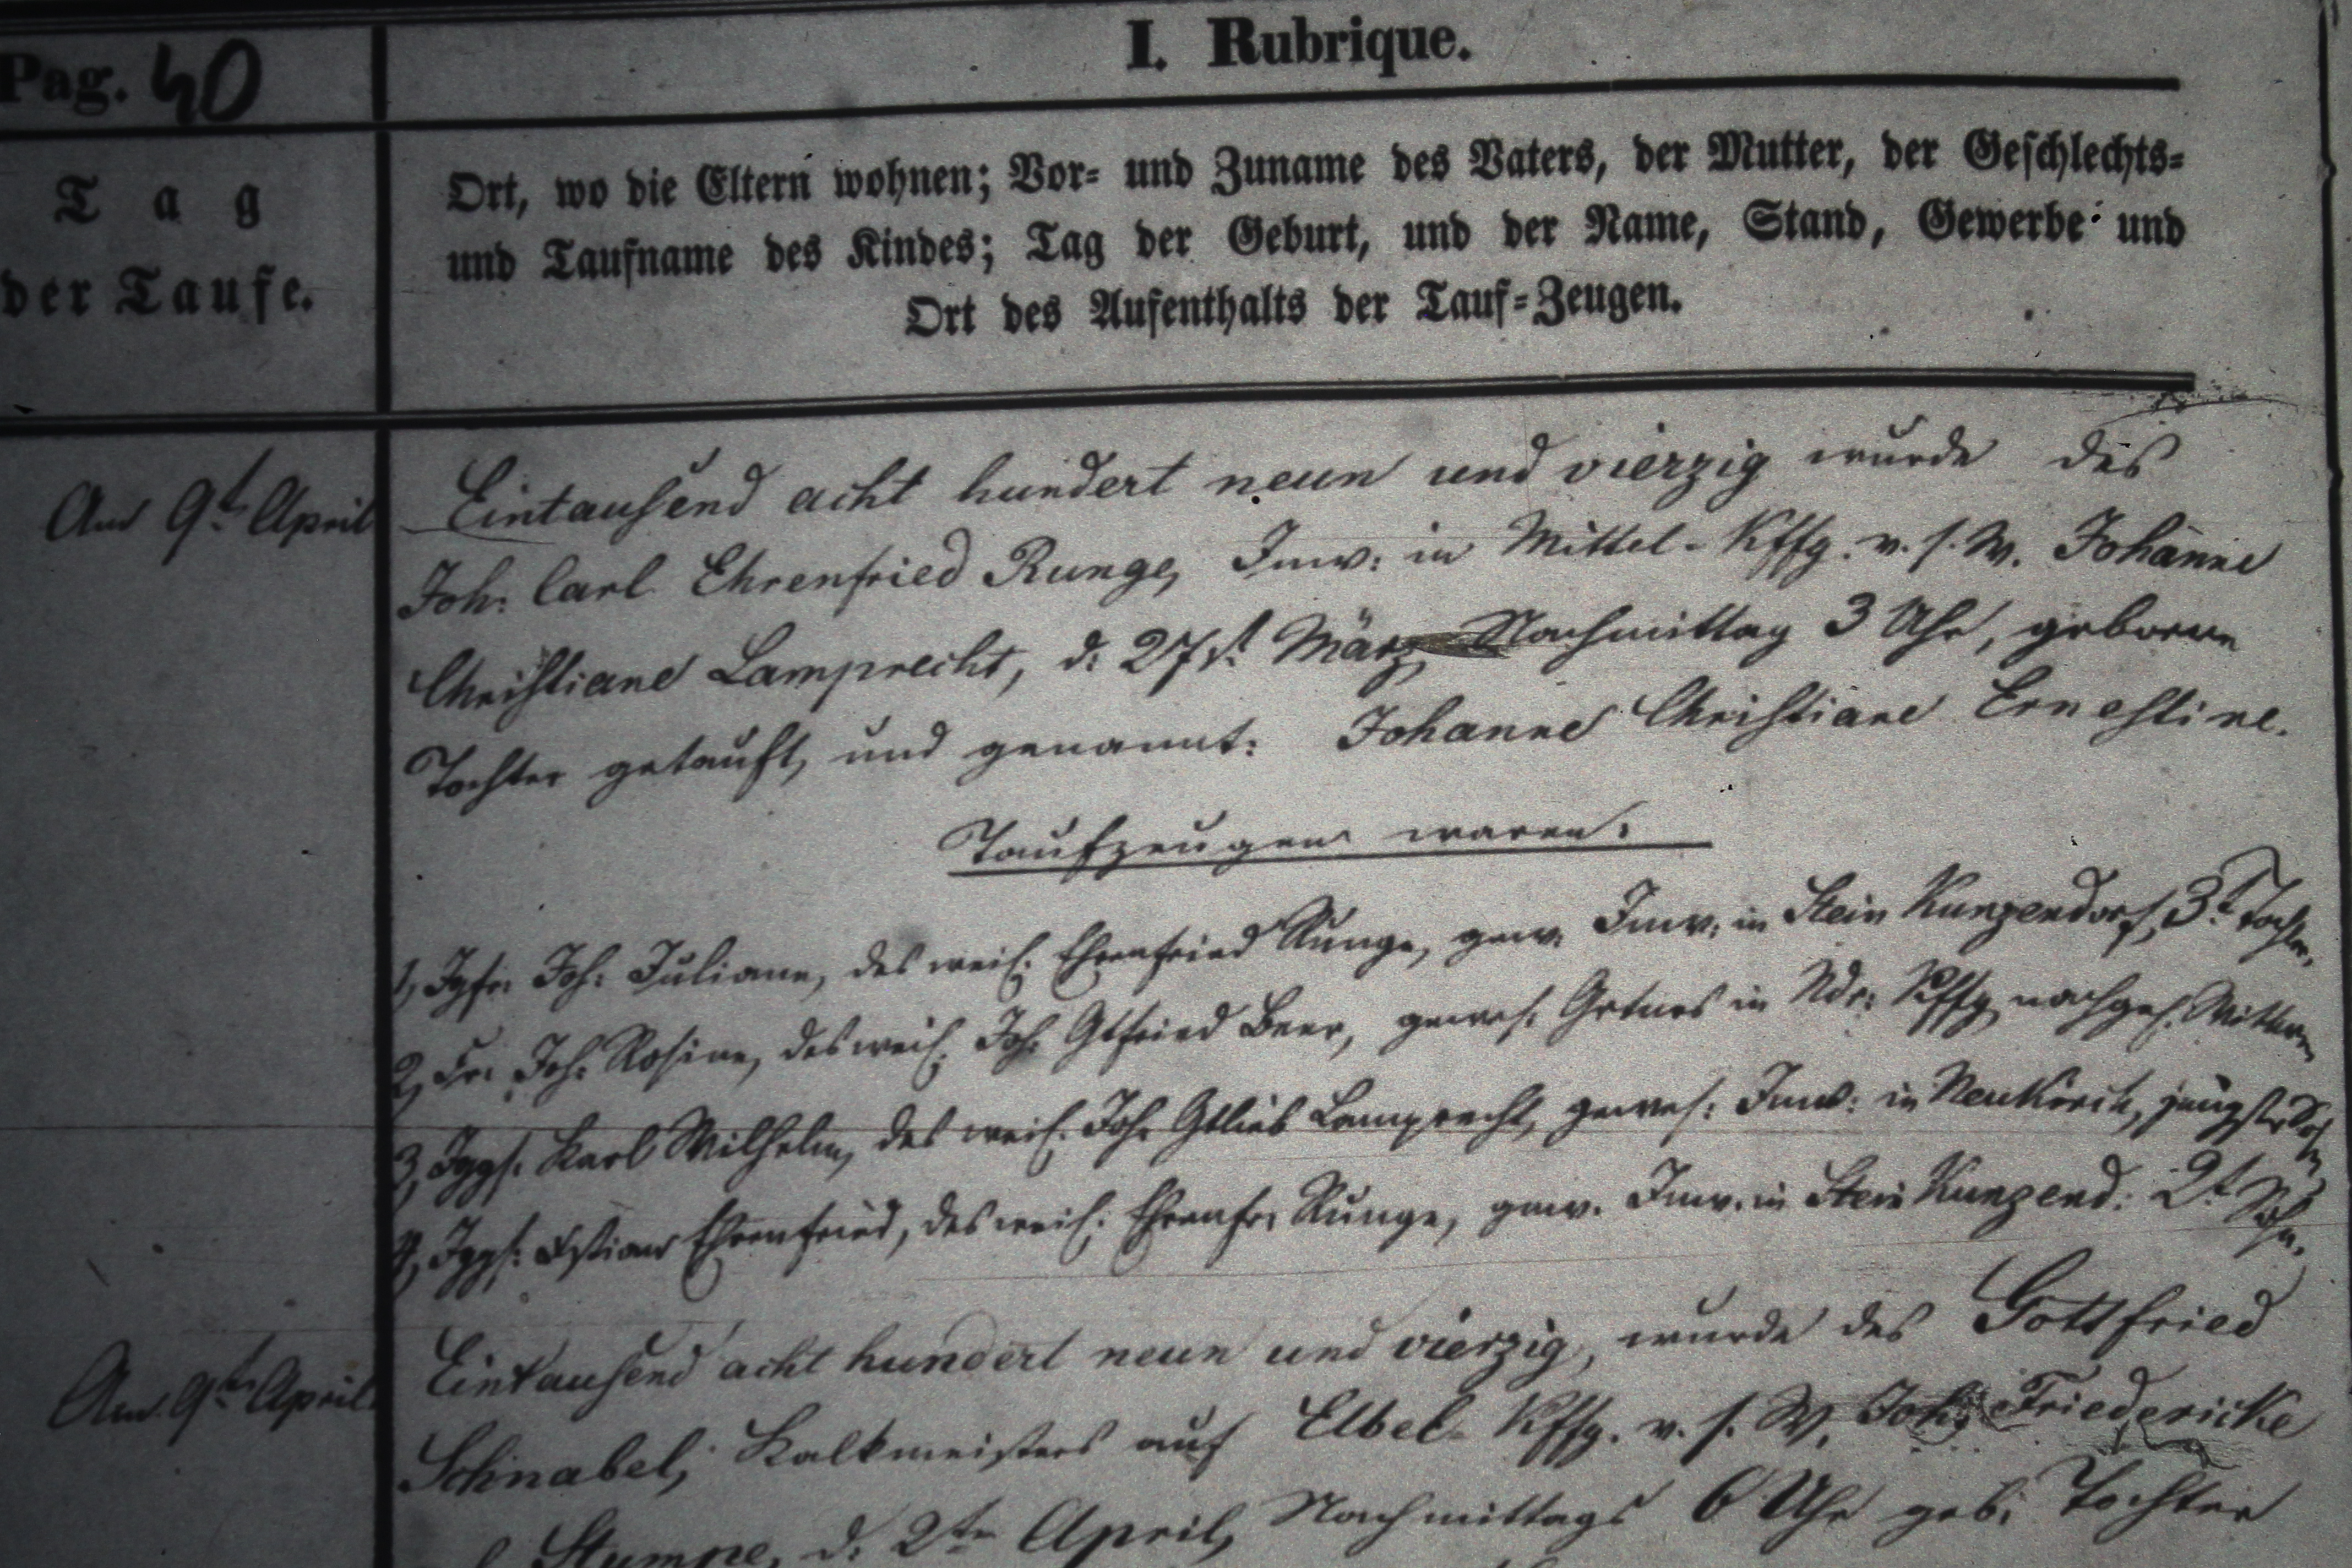 Pag. 40
I. Rubrique.
Tag
der Taufe.
Ort, wo die Eltern wohnen; Vor- und Zuname des Vaters, der Mutter, der Geschlechts-
und Taufname des Kindes; Tag der Geburt, und der Name, Stand, Gewerbe und
Ort des Aufenthalts der Tauf-Zeugen.
Am 9t. April Eintausend acht hundert neun und vierzig wurde des
Joh: Carl Ehrenfried Runge, Inw: in Mittel-Kffg. v. s. W. Johanne
Christiane Lamprecht, d: 27st März Nachmittag 3 Uhr, geborene
Tochter getauft, und genannt: Johanne Christiane Ernestine.
Taufzeugen waren:
1, Igfr. Joh: Juliane, des weil. Ehrenfried Runge, gew. Inw: in Stein Kunzendorf, 3t Tochter.
2, Fr. Joh: Rosine, des weil. Joh: Gtfried Beer, gewes. Grtners in Ndr: Kffg nachgel. Wittwe
3, Iggs. Karl Wilhelm, des weil. Joh: Gtlieb Lamprecht, gewes: Inw: in Neukirch, jüngster Sohn
4, Iggs: Ehrenfried, des weil: Ehrenfr. Runge, gew. Inw. in Stein Kunzend: 2t Sohn.
Am 9te April Eintausend acht hundert neun und vierzig, wurde des Gottfried
Schnabel, Kalkmeisters auf Elbel-Kffg. v. s. W. Joh: Friedericke
Stumpe, d: 2te April, Nachmittags 6 Uhr geb: Tochter